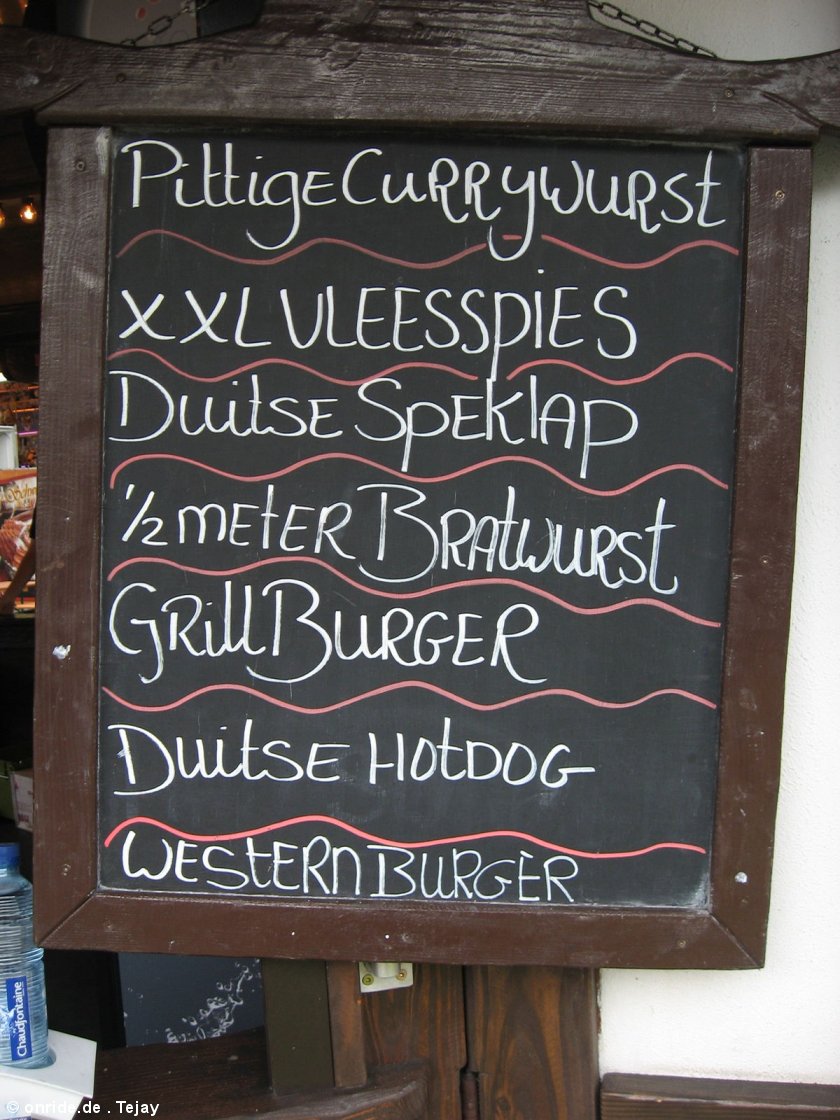 Pittige Currywurst
XXL VLEESSPIES
Duitse Speklap
1/2 meter Bratwurst
Grill Burger
Duitse Hotdog
Western Burger
Chaudfontaine
© onride.de . Tejay